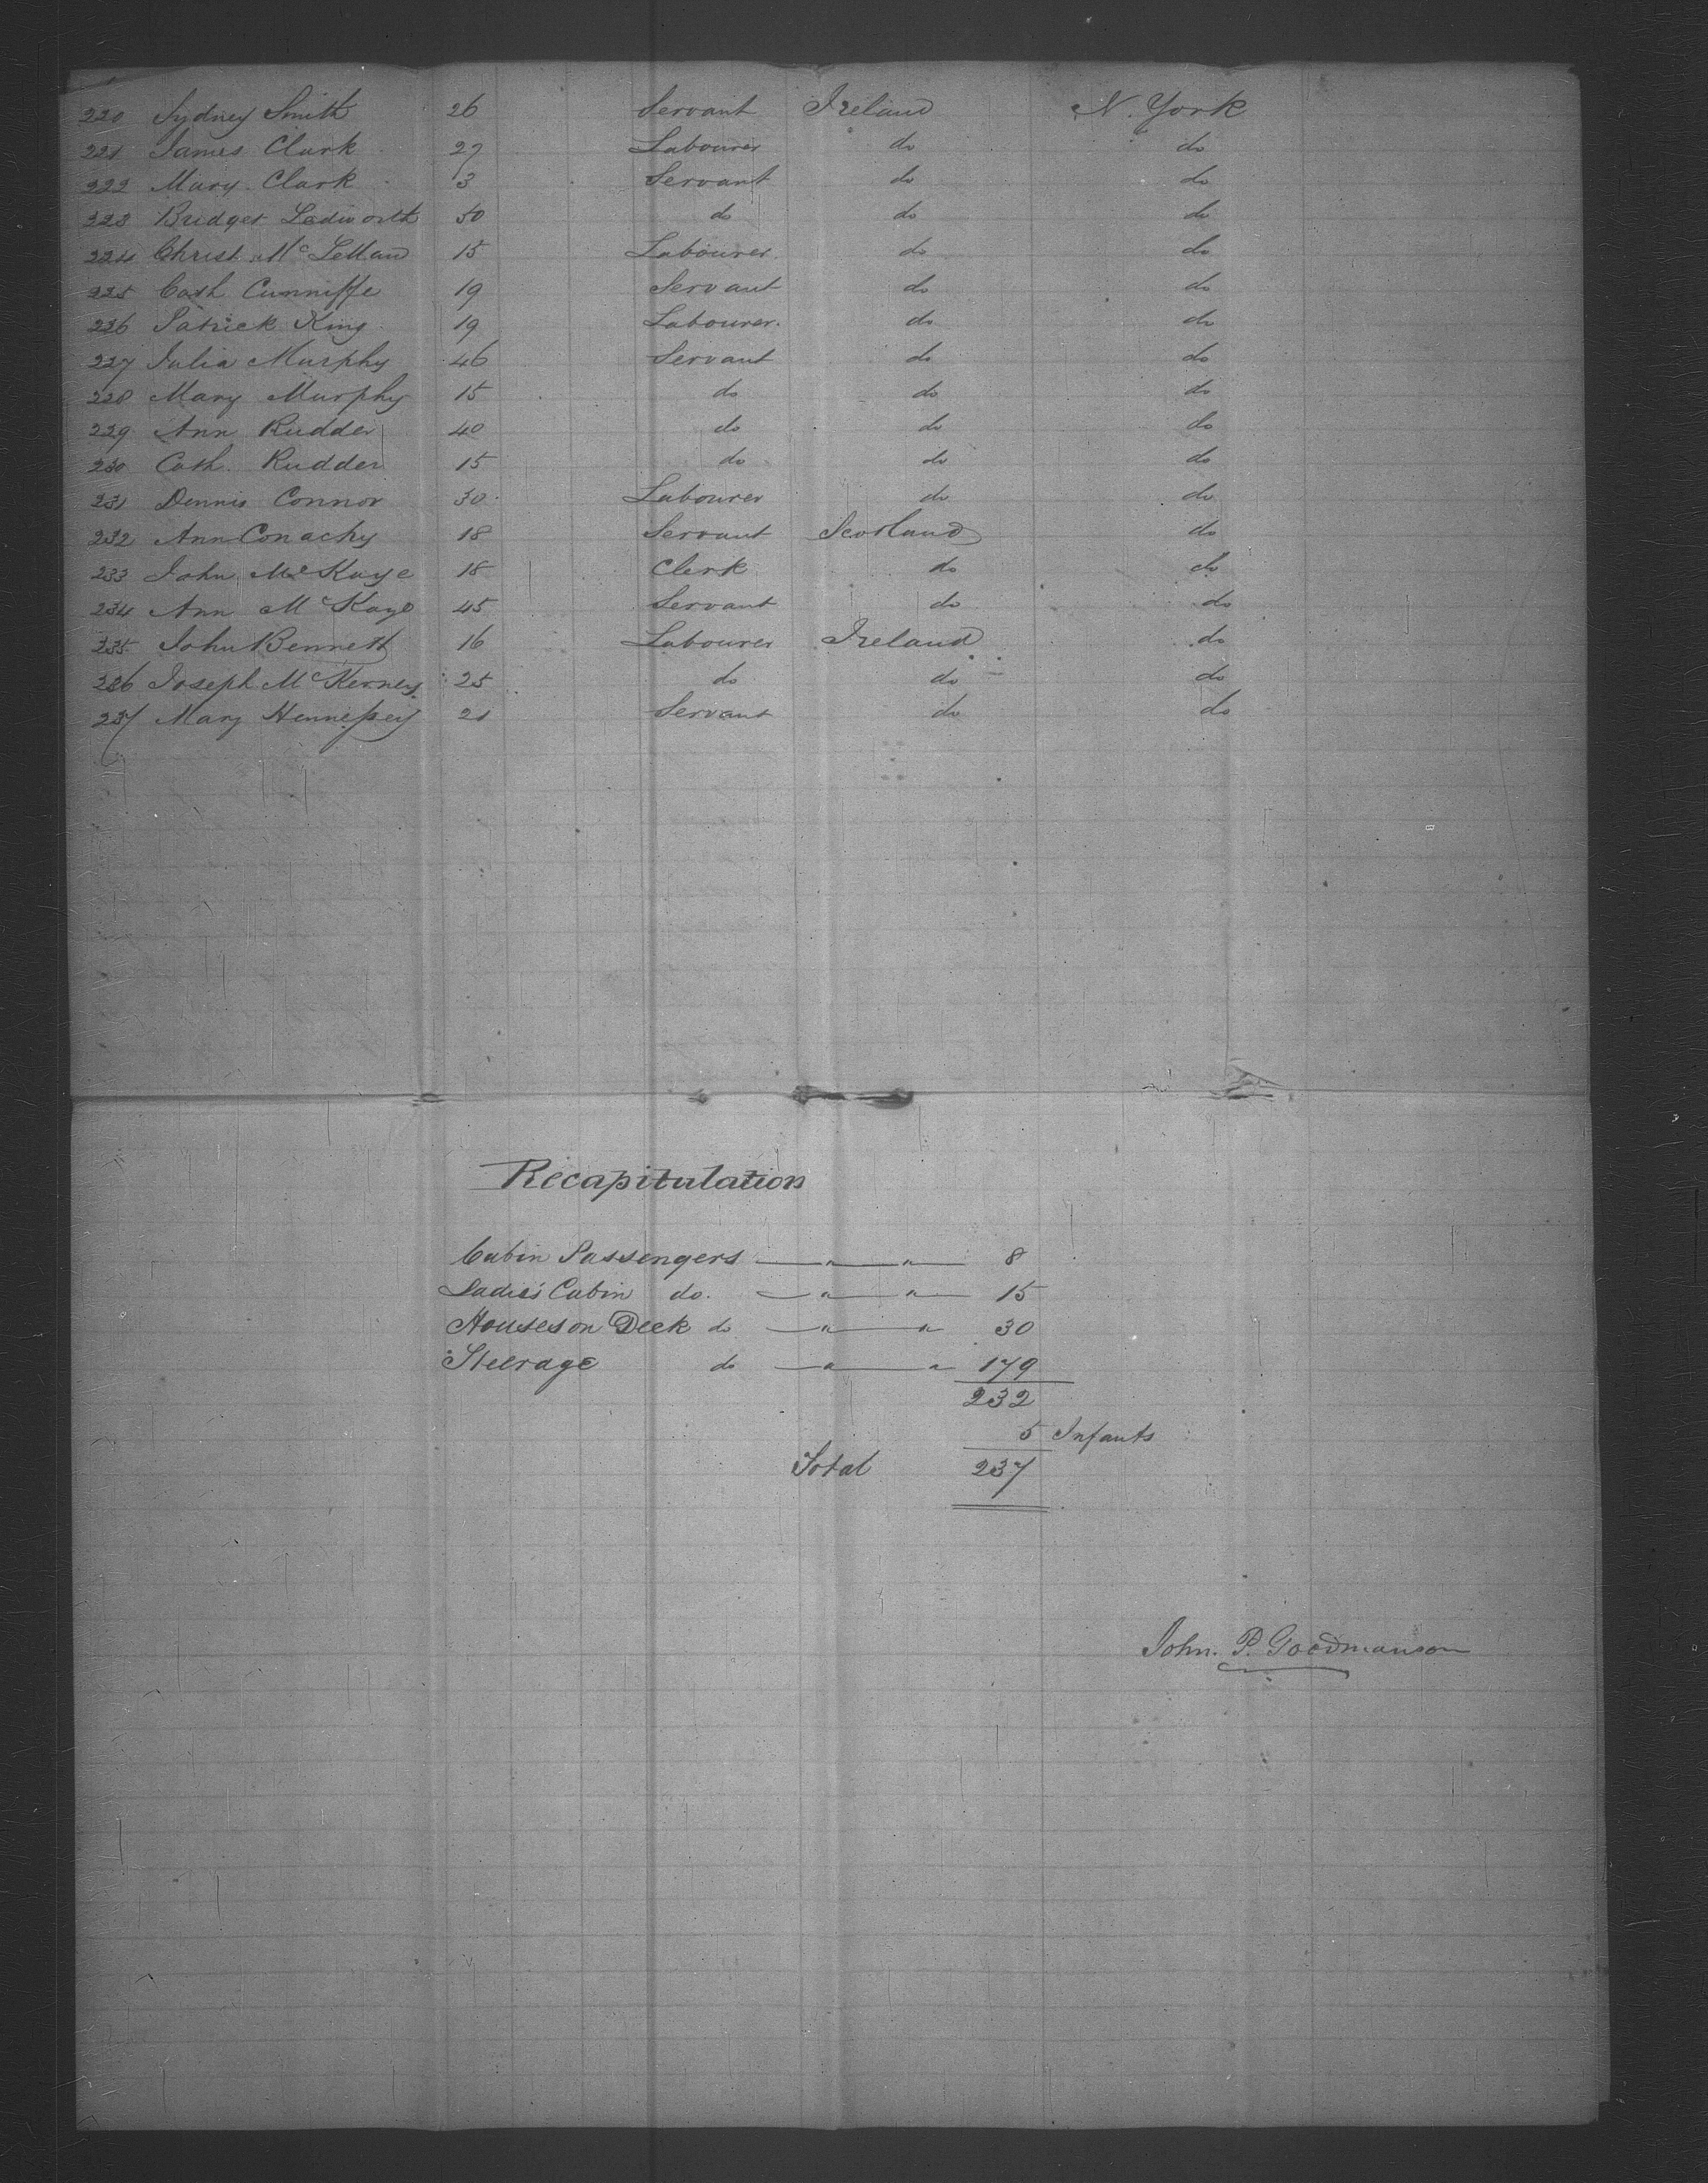 220 Sydney Smith 26 Servant Ireland N. York
221 James Clark 27 Labourer do do
222 Mary Clark 3 Servant do do
223 Bridget Ledworth 50 do do do
224 Christ. McLellan 15 Labourer do do
225 Cath Cunniffe 19 Servant do do
226 Patrick King 19 Labourer do do
227 Julia Murphy 46 Servant do do
228 Mary Murphy 15 do do do
229 Ann Rudder 40 do do do
230 Cath. Rudder 15 do do do
231 Dennis Connor 30 Labourer do do
232 Ann Conachy 18 Servant Scotland do
233 John McKaye 18 Clerk do do
234 Ann McKaye 45 Servant do do
235 John Bennett 16 Labourer Ireland do
236 Joseph McKerney 25 do do do
237 Mary Hennessey 21 Servant do do
Recapitulation
Cabin Passengers — " — " — 8
Ladies' Cabin do. — " — " — 15
Houses on Deck do — " — " 30
Steerage do — " — " 179
232
5 Infants
Total 237
John. P. Goodmanson